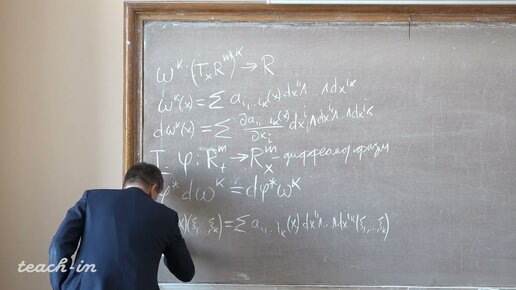 ω^k: (T_x R^m)^k → R
ω^k(x) = ∑ a_{i_1...i_k}(x) dx^{i_1} ∧ ... ∧ dx^{i_k}
dω^k(x) = ∑ ∂a_{i_1...i_k}(x)/∂x_i dx^i ∧ dx^{i_1} ∧ dx^{i_k}
T. φ: R^m_t → R^m_x - диффеоморфизм
φ* dω^k = dφ* ω^k
)(ξ_1...ξ_k) = ∑ a_{i_1...i_k}(x) dx^{i_1} ∧ ... ∧ dx^{i_k} (ξ_1, ..., ξ_k)
teach-in